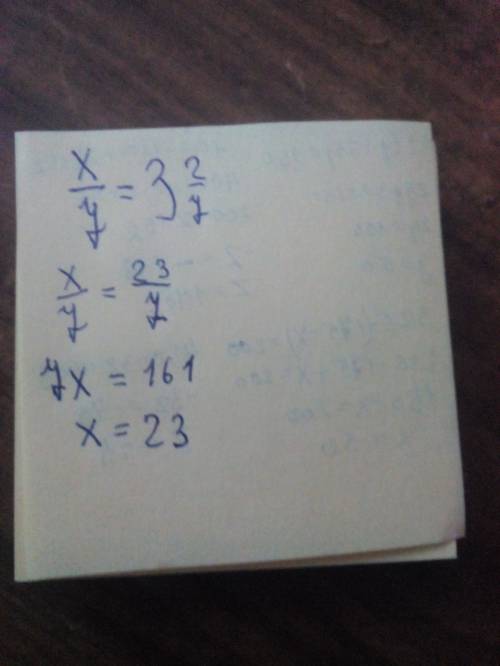 x/7 = 3 2/7
x/7 = 23/7
7x = 161
x = 23